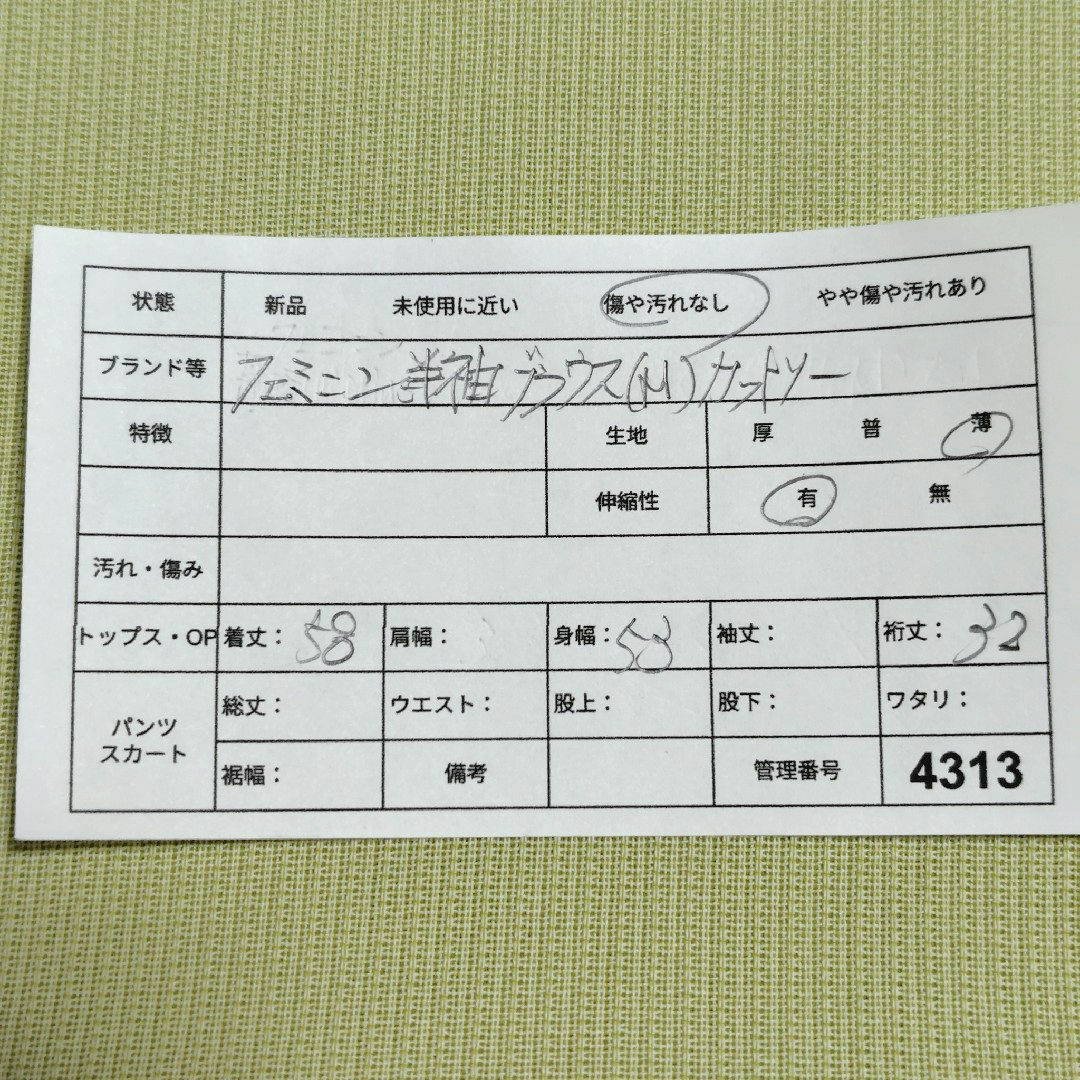 状態 新品 未使用に近い 傷や汚れなし やや傷や汚れあり
ブランド等 フェミニン半袖ブラウス(M)カットソー
特徴 生地 厚 普 薄
伸縮性 有 無
汚れ・傷み
トップス・OP 着丈: 58 肩幅: 身幅: 53 袖丈: 裄丈: 32
パンツ スカート 総丈: ウエスト: 股上: 股下: ワタリ:
裾幅: 備考 管理番号 4313